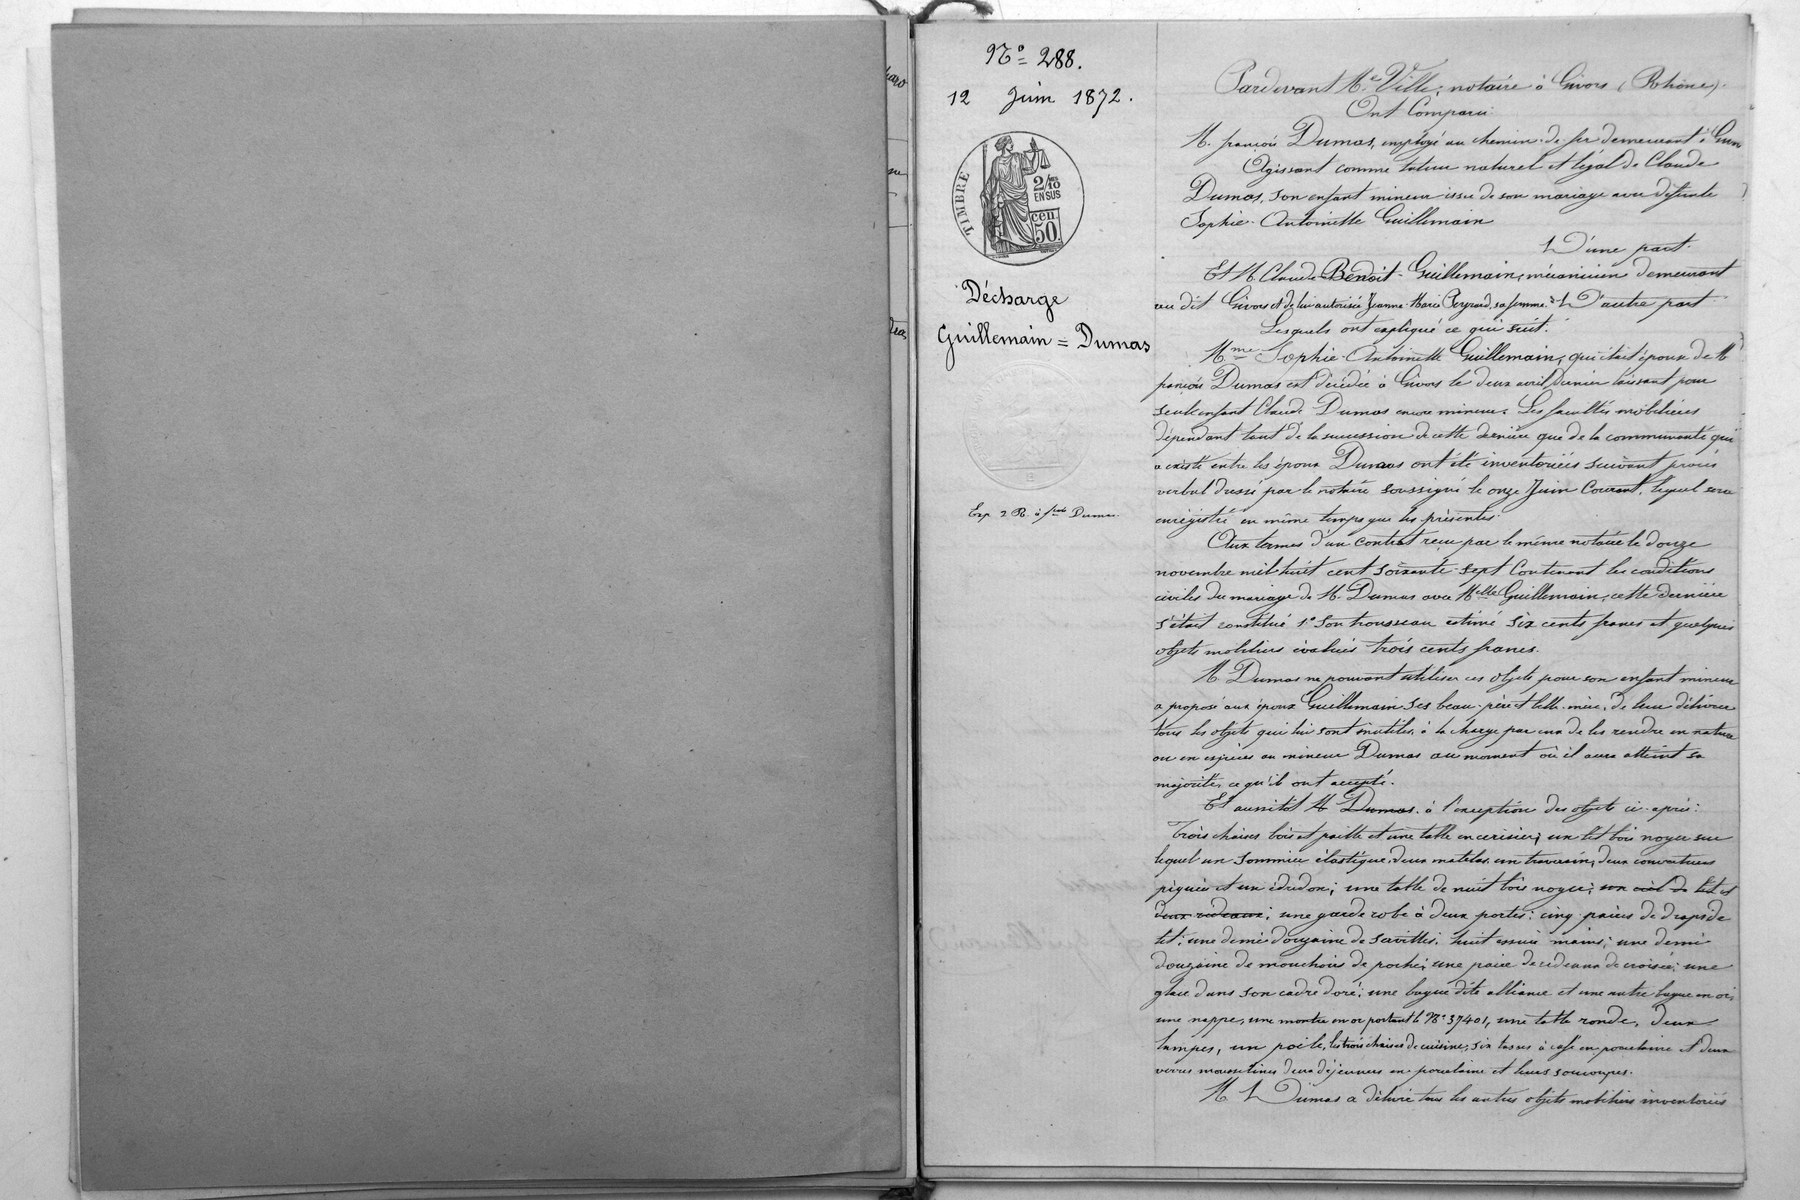 N.° 288.
12 Juin 1872.
TIMBRE
2/10
EN SUS
cen
50.
Décharge
Guillemain = Dumas
Exp. 2 R. à Dumas
Pardevant M.e Ville, notaire à Givors (Rhône).
Ont Comparu
M. françois Dumas, employé au chemin de fer demeurant à Givors
Agissant comme tuteur naturel et légal de Claude
Dumas, son enfant mineur issu de son mariage avec défunte
Sophie-Antoinette Guillemain
D'une part.
Et M. Claude-Benoit-Guillemain, mécanicien demeurant
au dit Givors et de lui autorisée Jeanne-Marie Peyrard, sa femme D'autre part
Lesquels ont expliqué ce qui suit:
M.me Sophie-Antoinette Guillemain, qui était épouse de M
françois Dumas est décédée à Givors le deux avril dernier laissant pour
seul enfant Claude Dumas encore mineur. Les facultés mobilières
dépendant tant de la succession de cette dernière que de la communauté qui
a existé entre les époux Dumas ont été inventoriées suivant procès
verbal dressé par le notaire soussigné le onze Juin Courant, lequel sera
enregistré en même temps que les présentes.
Aux termes d'un contrat reçu par le même notaire le douze
novembre mil huit cent soixante-sept Contenant les conditions
civiles du mariage de M. Dumas avec M.elle Guillemain, cette dernière
s'était constitué 1.° Son trousseau estimé six cents francs et quelques
objets mobiliers évalués trois cents francs.
M Dumas ne pouvant utiliser ces objets pour son enfant mineur
a proposé aux époux Guillemain ses beau-père et belle-mère, de leur délivrer
tous les objets qui lui sont inutiles, à la charge par eux de les rendre en nature
ou en espèces au mineur Dumas au moment où il aura atteint sa
majorité, ce qu'ils ont accepté.
Et aussitôt M Dumas. à l'exception des objets ci-après:
Trois chaises bois et paille et une table en cerisier; un lit bois noyer sur
lequel un sommier élastique, deux matelas, un traversin, deux couvertures
piquées et un édredon; une table de nuit bois noyer; son ciel de lit et
deux rideaux; une garde robe à deux portes; cinq paires de draps de
lit; une demi douzaine de serviettes; huit essuie mains; une demi
douzaine de mouchoirs de poche; une paire de rideaux de croisée; une
glace dans son cadre doré; une bague dite alliance et une autre bague en or,
une nappe, une montre en or portant le N.° 37401, une table ronde, deux
lampes, un poêle, les trois chaises de cuisine, six tasses à café en porcelaine et deux
verres mousselines deux déjeuners en porcelaine et leurs soucoupes.
M. Dumas a délivré tous les autres objets mobiliers inventoriés